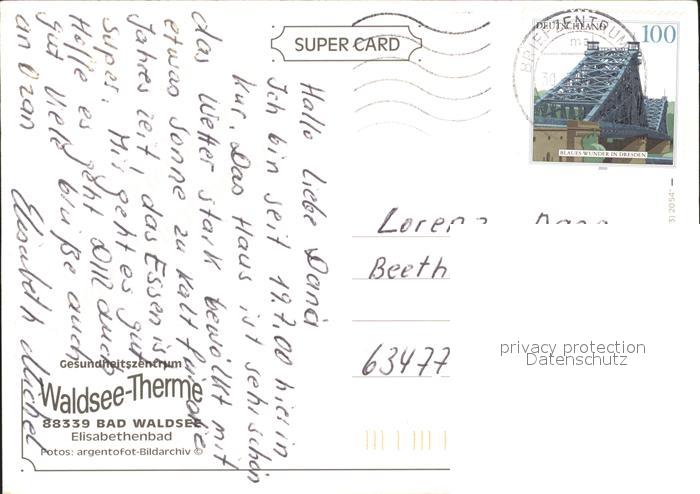 SUPER CARD
Hallo liebe Dana
Ich bin seit 19.7.00 hier in
Kur. Das Haus ist sehr schön
das Wetter stark bewölkt mit
etwas Sonne zu kalt für die
Jahreszeit! das Essen ist
Super. Mir geht es gut
Hoffe es geht Dir auch
gut Viele Grüße auch
an Ozan
Elisabeth Michel
Gesundheitszentrum
Waldsee-Therme
88339 BAD WALDSEE
Elisabethenbad
Fotos: argentofot-Bildarchiv ©
BRIEFZENTRUM
30
DEUTSCHLAND 100
BLAUES WUNDER IN DRESDEN
2000
Lorenz Dana
Beeth
63477
privacy protection
Datenschutz